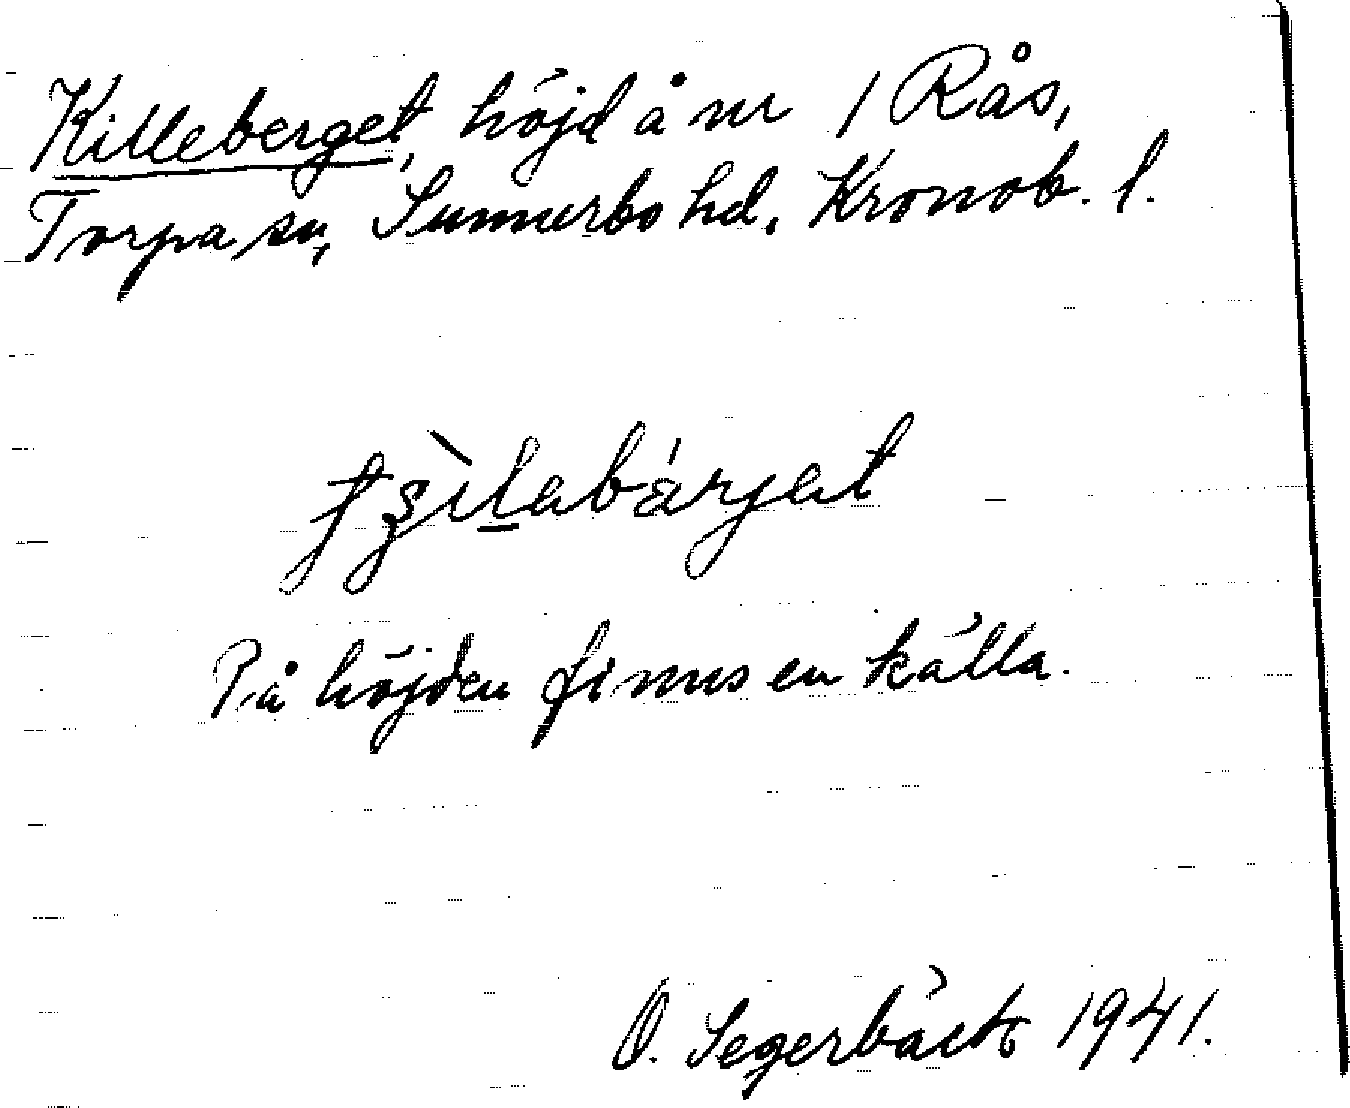 Killeberget, höjd å nr 1 Rås,
Torpa sn, Sunnerbo hd, Kronob. l.
På höjden finns en källa.
O. Segerbäck 1941.